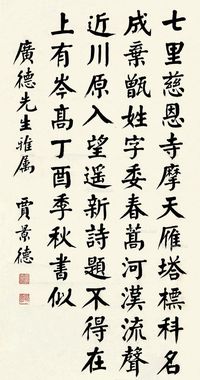 七里慈恩寺摩天雁塔標科名
成棄甑姓字委春蒿河漠流聲
近川原入望遥新詩題不得在
上有岑高丁酉季秋書似
廣德先生雅属
賈景德